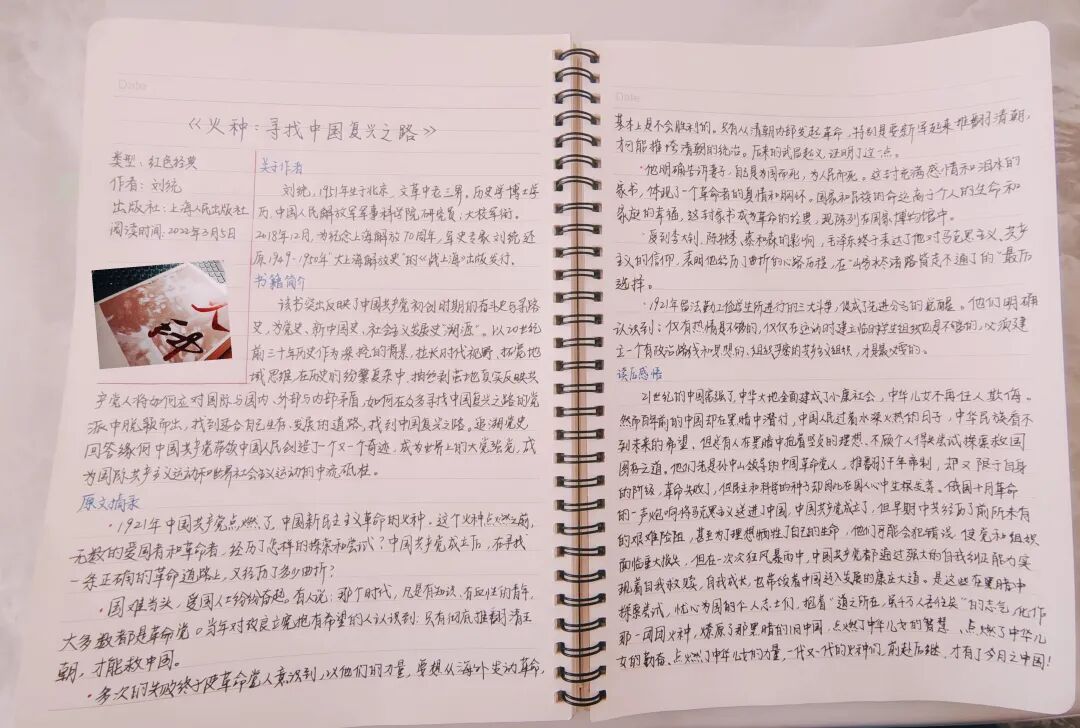 Date
《火种：寻找中国复兴之路》
类型：红色经典
作者：刘统
出版社：上海人民出版社
阅读时间：2022年3月5日
关于作者
刘统，1951年生于北京，文革中老三界。历史学博士学
历，中国人民解放军军事科学院研究员，大校军衔。
2018年12月，为纪念上海解放70周年，军史专家刘统还
原1949-1950年"大上海解放史"的《战上海》出版发行。
书籍简介
该书突出反映了中国共产党初创时期的奋斗史与寻路
史，为党史、新中国史、社会主义发展史"溯源"。以20世纪
前三十年历史作为深挖的背景，拉长时代视野、拓宽地
域思维，在历史的纷繁复杂中，抽丝剥茧地真实反映共
产党人将如何应对国际与国内、外部与内部矛盾，如何在众多寻找中国复兴之路的党
派中脱颖而出，找到适合自己生存、发展的道路，找到中国复兴之路。追溯党史，
回答缘何中国共产党带领中国人民创造了一个又一个奇迹，成为世界上的大党强党，成
为国际共产主义运动和世界社会主义运动的中流砥柱。
原文摘录
·1921年中国共产党点燃了中国新民主主义革命的火种。这个火种点燃之前，
无数的爱国者和革命者，经历了怎样的探索和尝试？中国共产党成立后，在寻找
一条正确的革命道路上，又经历了多少曲折？
·国难当头，爱国人士纷纷奋起。有人说：那个时代，凡是有知识、有血性的青年，
大多数都是革命党。当年对改良立宪抱有希望的人认识到：只有彻底推翻清王
朝，才能救中国。
·多次的失败终于使革命党人意识到，以他们的力量，要想从海外发动革命，
Date
基本上是不会胜利的。只有从清朝内部发起革命，特别是要新军起来推翻清朝，
才能推垮清朝的统治。后来的武昌起义证明了这一点。
·他明确告诉妻子，自己是为国而死，为人民而死。这封充满感情和泪水的
家书，体现了一个革命者的真情和胸怀。国家和民族的命运高于个人的生命和
家庭的幸福，这封家书成为革命的经典，现陈列在国家博物馆中。
·受到李大钊、陈独秀、蔡和森的影响，毛泽东终于表达了他对马克思主义、共产
主义的信仰，表明他经历了曲折的心路历程，在"山穷水尽诸路皆走不通了的"最后
选择。
·1921年留法勤工俭学生所进行的三大斗争，促成了先进分子的觉醒。他们明确
认识到：仅有热情是不够的，仅仅在运动时建立临时学生组织也是不够的，必须建
立一个有政治路线和思想的、组织严密的共产主义组织，才是最必要的。
读后感悟
21世纪的中国富强了，华夏大地全面建成了小康社会，中华儿女不再任人欺侮。
然而百年前的中国却在黑暗中潜行，中国人民过着水深火热的日子，中华民族看不
到未来的希望。但是有人在黑暗中抱着坚贞的理想、不顾个人得失尝试、探索救国
图存之道。他们先是孙中山领导的中国革命党人，推翻了千年帝制，却又限于自身
的阶级，革命失败了，但民主和科学的种子却因此在国人心中生根发芽。俄国十月革命
的一声炮响将马克思主义送进了中国，中国共产党成立了，但早期中共经历了前所未有
的艰难险阻，甚至为了理想牺牲了自己的生命，他们可能会犯错误，使党和组织
面临重大损失，但在一次次狂风暴雨中，中国共产党都通过强大的自我纠正能力实
现着自我救赎，自我成长，也带领着中国迈入发展的康庄大道。是这些在黑暗中
探索尝试，忧心为国的仁人志士们，抱着"道之所在，虽千万人吾往矣"的志气，化作
那一团团火种，燎原了那黑暗的旧中国，点燃了中华儿女的智慧、点燃了中华儿
女的勤奋、点燃了中华儿女的力量，一代又一代的火种们，前赴后继，才有了今日之中国！